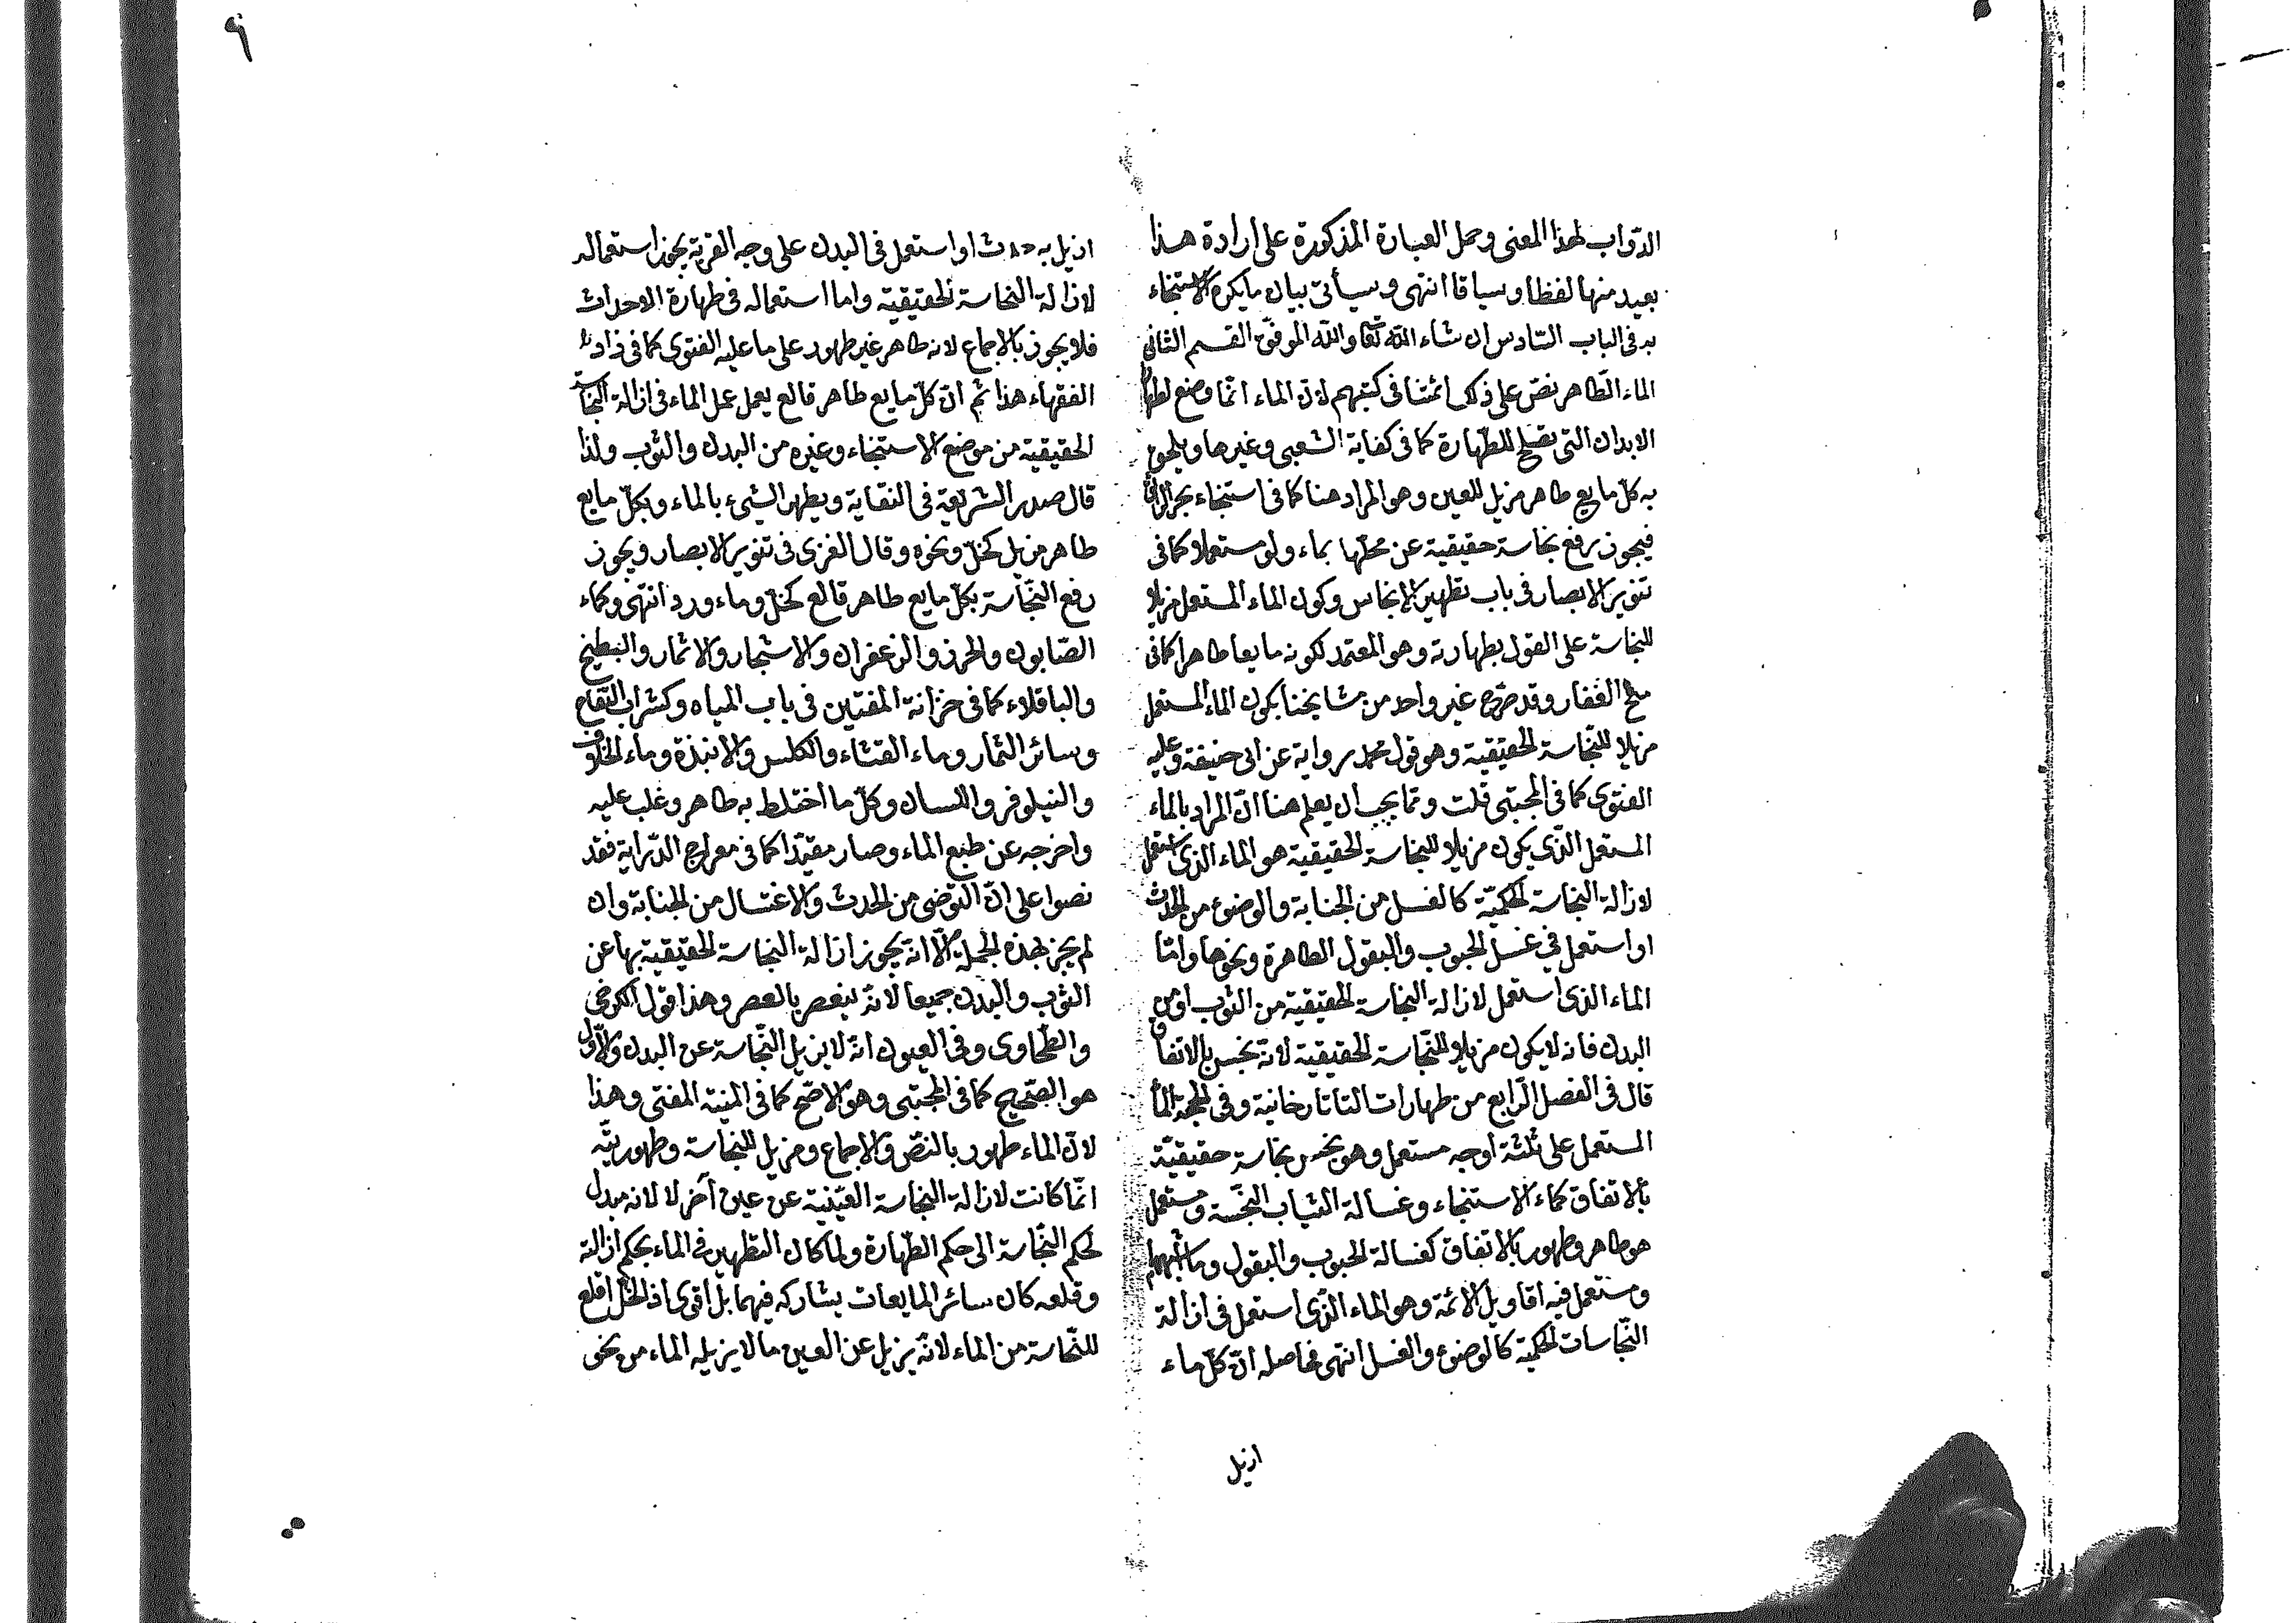 الدّواب لهذا المعنى وحمل العبارة المذكورة على ارادة هذا
بعيد منها لفظا وسياقا انتهى وسيأتى بيان مايكره الاستنجاء
به فى الباب السّادس ان شاء اللّه تعالى واللّه الموفّق القسم الثانى
الماء الطّاهر نصّ على ذلك ائمتنا فى كتبهم لانّ الماء انّما وضع
الابدان التى تصلح للطّهارة كما فى كفاية الشعبى وغيرها ويلحق
به كلّ مايع طاهر مزيل للعين وهو المراد هنا كما فى استنجاء بحر الرائق
فيجوز رفع نجاسة حقيقية عن محلّها بماء ولو مستعملا كما فى
تنوير الابصار فى باب تطهير الانجاس وكون الماء المستعمل مزيلا
للنجاسة على القول بطهارته وهو المعتمد لكونه مايعا طاهرا كما فى
منح الغفار وقد صرّح غير واحد من مشايخنا بكون الماء المستعمل
مزيلا للنّجاسة الحقيقية وهو قول محمد رواية عن ابى حنيفة وعليه
الفتوى كما فى المجتبى قلت وممّا يجب ان يعلم هنا انّ المراد بالماء
المستعمل الّذى يكون مزيلا للنجاسة الحقيقية هو الماء الذى استعمل
لازالة النجاسة الحكميّة كالغسل من الجنابة والوضوء من الحدث
او استعمل فى غسل الحبوب والبقول الطاهرة ونحوها وامّا
الماء الذى استعمل لازالة النجاسة الحقيقية من الثوب او من
البدن فانه لا يكون مزيلا للنّجاسة الحقيقية لانّه نجس بالاتفاق
قال فى الفصل الرّابع من طهارات التاتارخانية وفى الحجة الماء
المستعمل على ثلثة اوجه مستعمل وهو نجس نجاسة حقيقيّة
بالاتفاق كماء الاستنجاء وغسالة الثياب النّجسة ومستعمل
هو طاهر وطهور بالاتفاق كغسالة الحبوب والبقول وما
ومستعمل فيه اقاويل الائمّة وهو الماء الّذى استعمل فى ازالة
النّجاسات الحكميّة كالوضوء والغسل انتهى فحاصله انّ كلّ ماء
ازيل
٩
ازيل به حدث او استعمل فى البدن على وجه القربة يجوز استعماله
لازالة النجاسة الحقيقية واما استعماله فى طهارة الاحداث
فلا يجوز بالاجماع لانه طاهر غير طهور على ما عليه الفتوى كما فى زاد
الفقهاء هذا ثم انّ كلّ مايع طاهر قالع يعمل عمل الماء فى ازالة النجاسة
الحقيقية من موضع الاستنجاء وغيره من البدن والثوب ولذا
قال صدر الشريعة فى النقاية ويطهر الشىء بالماء وبكلّ مايع
طاهر مزيل كخلّ ونحوه وقال الغزى فى تنوير الابصار ويجوز
رفع النّجاسة بكلّ مايع طاهر قالع كخلّ وماء ورد انتهى وكماء
الصّابون والحرز والزعفران والاشجار والاثمار والبطّيخ
والباقلاء كما فى خزانة المفتين فى باب المياه وكشراب التفاح
وسائر الثمار وماء القثاء والكلس والانبذة وماء الخلاف
والنيلوفر واللسان وكلّ ما اختلط به طاهر وغلب عليه
واخرجه عن طبع الماء وصار مقيّدا كما فى معراج الدّراية فقد
نصوا على انّ التوضى من الحدث والاغتسال من الجنابة وان
لم يجز بهذه الجملة الّا انه يجوز ازالة النجاسة الحقيقية بها عن
الثوب والبدن جميعا لانّه ينعصر بالعصر وهذا قول الكرخى
والطّحاوى وفى العيون انّه لا يزيل النّجاسة عن البدن والاوّل
هو الصّحيح كما فى المجتبى وهو الاصّح كما فى المنية المفتى وهذا
لانّ الماء طهور بالنصّ والاجماع ومزيل للنجاسة وطهوريتّه
انّما كانت لازالة النجاسة العينية عن عين آخر لا لانه مبدل
لحكم النّجاسة الى حكم الطّهارة ولما كان التطهير فى الماء بحكم ازالته
وقلعه كان سائر المايعات يشاركه فيهما بل اقوى اذ الخلّ اقلع
للنّجاسة من الماء لانّه يزيل عن العين ما لا يزيله الماء من نحو